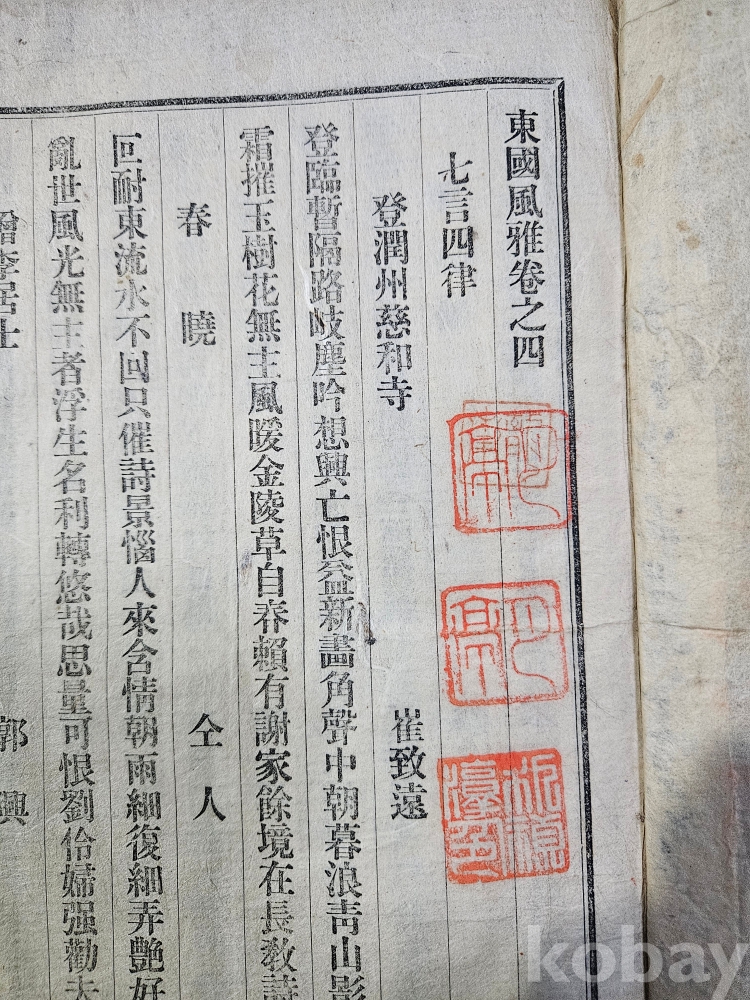 東國風雅卷之四
七言四律
登潤州慈和寺 崔致遠
登臨暫隔路岐塵吟想興亡恨益新畵角聲中朝暮浪靑山影
霜摧玉樹花無主風暖金陵草自春賴有謝家餘境在長敎詩
春曉 仝人
叵耐東流水不回只催詩景惱人來含情朝雨細復細弄艶好
亂世風光無主者浮生名利轉悠哉思量可恨劉伶婦强勸夫
贈李居士 郭興
kobay